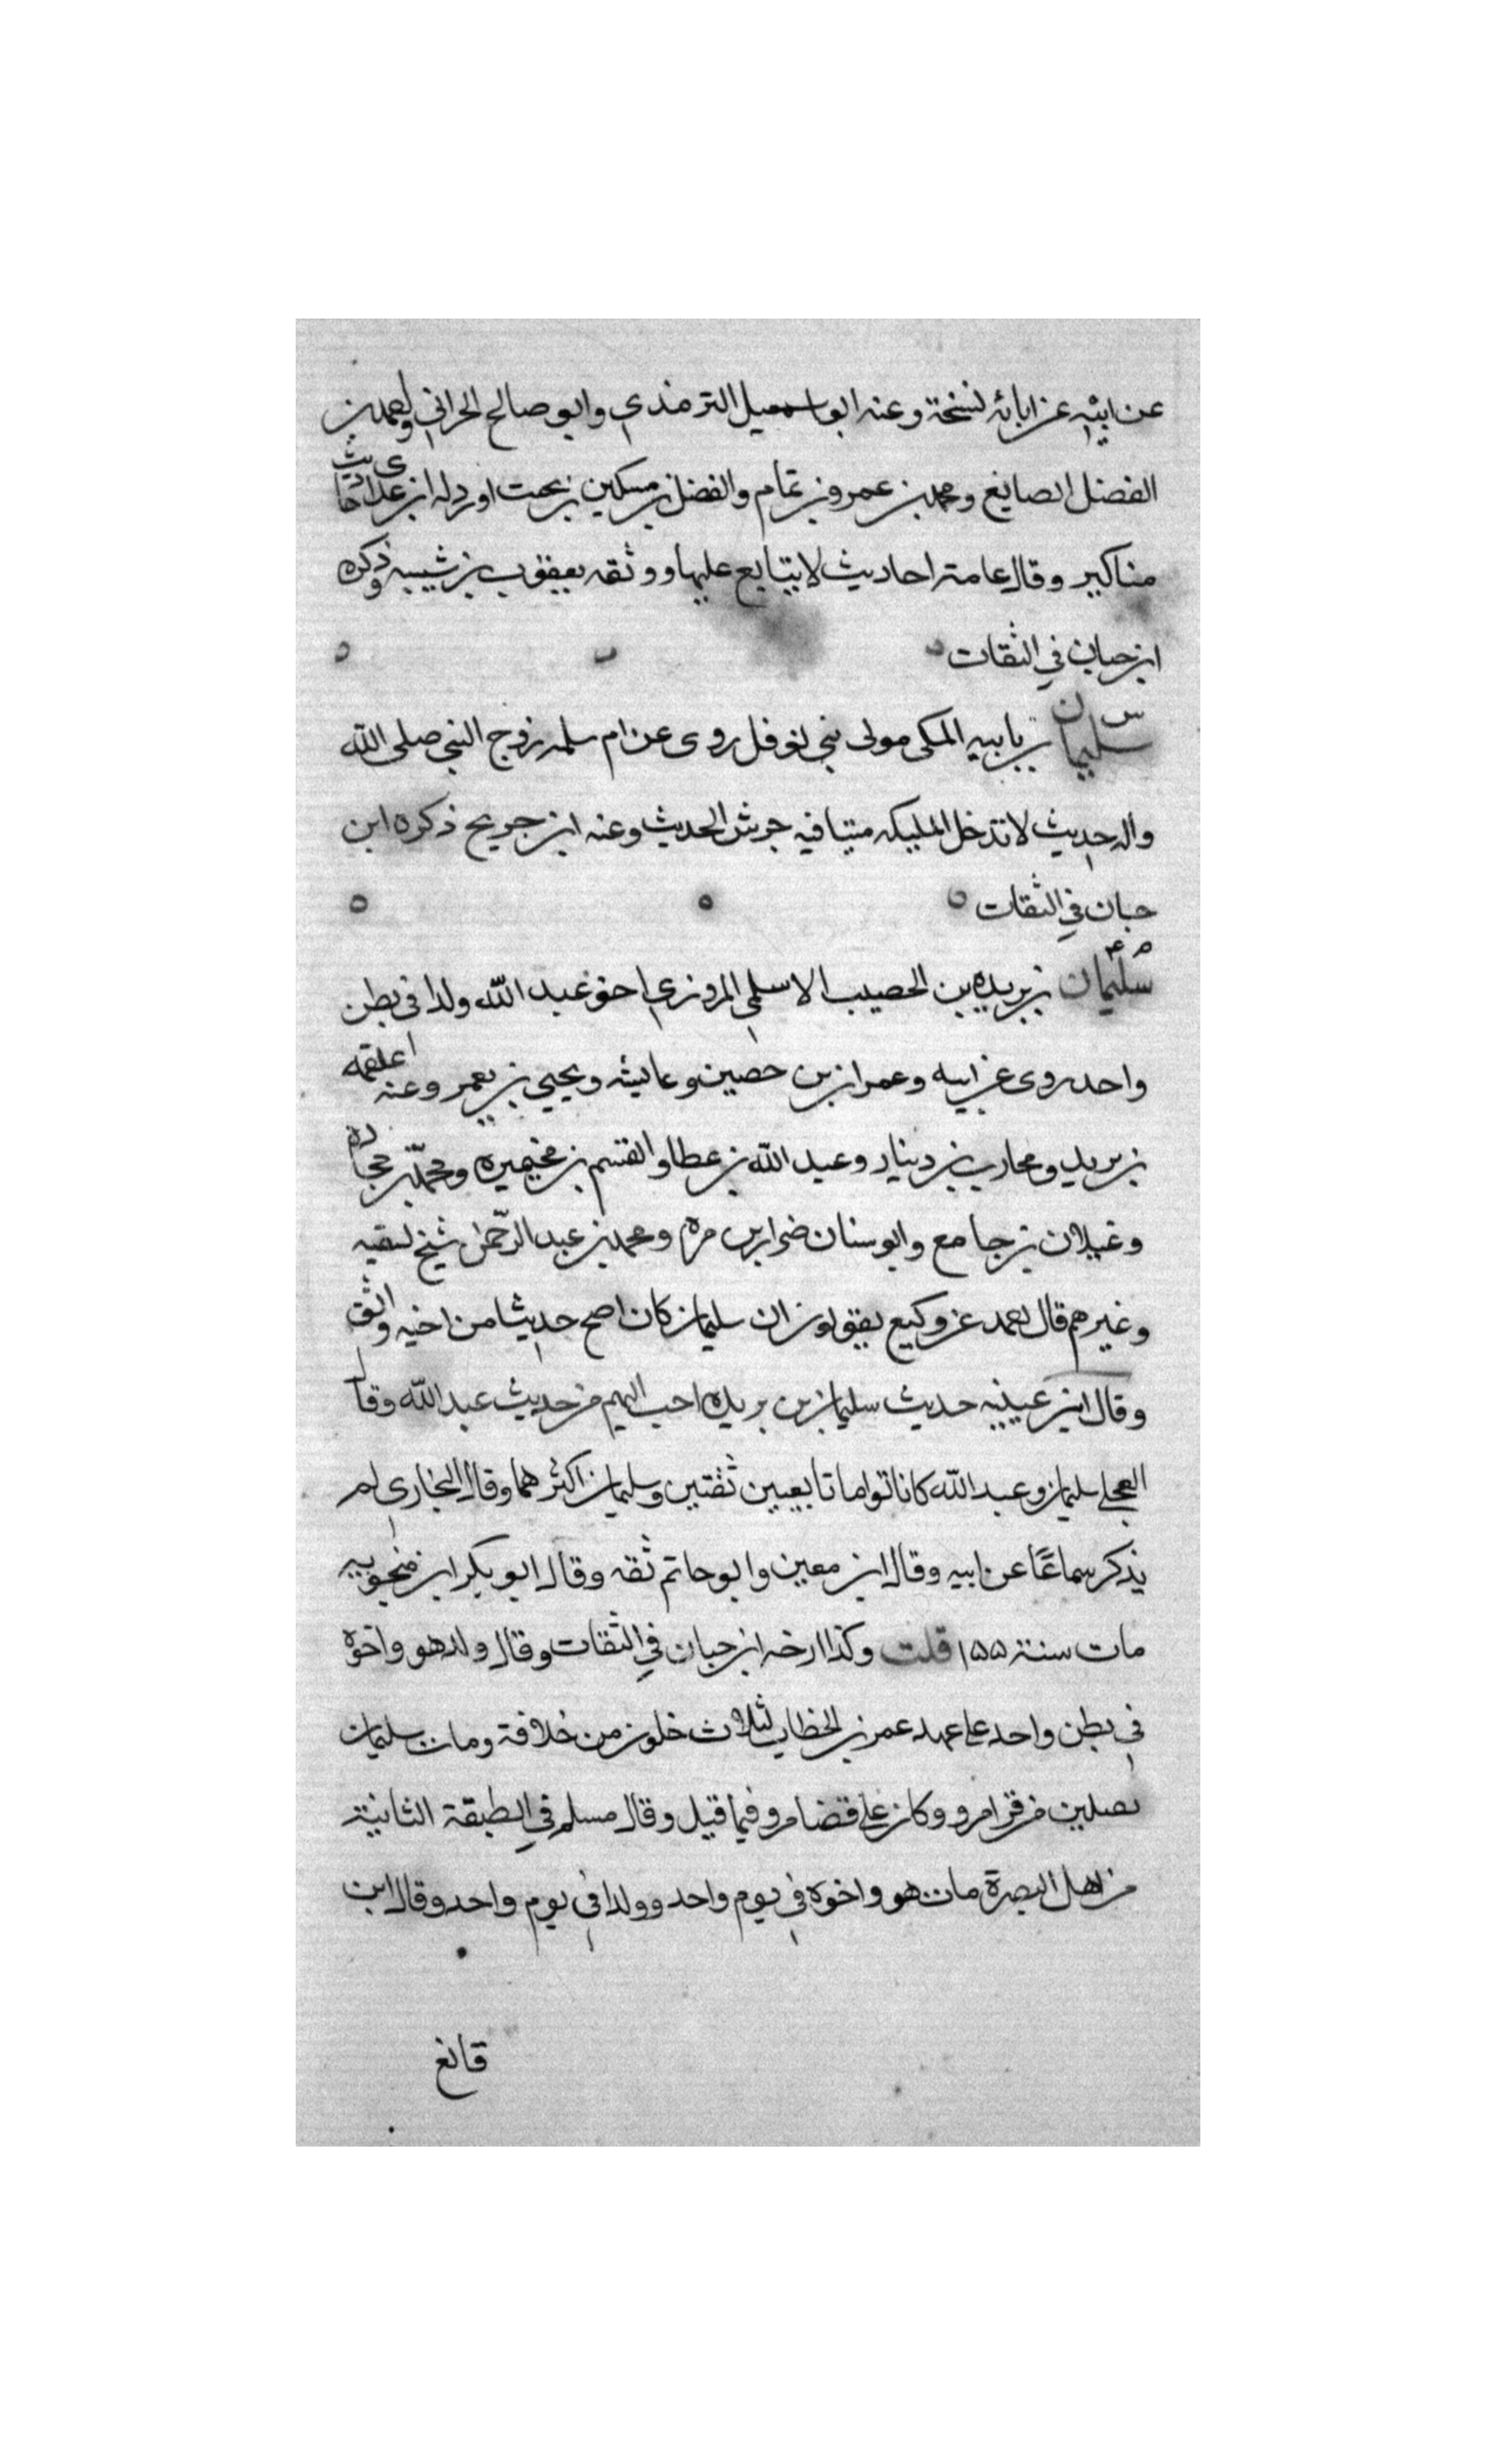 عن ابيه عن ابائه نسخة وعنه ابو اسمعيل الترمذي وابو صالح الحراني واحمد بن
الفضل الصايغ ومحمد بن عمرو بن تمام والفضل بن مسكين بن بحت اورد له ابن عدي احاديث
مناكير وقال عامتها احاديث لا يتابع عليها ووثقه يعقوب بن شيبه وذكره
ابن حبان في الثقات
س سليمان بن بابيه المكي مولى بني نوفل روى عن ام سلمه زوج النبي صلى الله
واله حديث لا تدخل المليكه بيتا فيه جرش الحديث وعنه ابن جريح ذكره ابن
حبان في الثقات
م ۴ سليمان بن بريده بن الحصيب الاسلمي المروزي اخو عبد الله ولدا في بطن
واحد روى عن ابيه وعمران بن حصين وعايشه ويحيى بن يعمر وعنه علقمه
بن بريد ومحارب بن دينار وعبد الله بن عطا والقسم بن مخيمره ومحمد بن حجاده
وغيلان بن جامع وابو سنان ضرار بن مره ومحمد بن عبد الرحمن شيخ لبقيه
وغيرهم قال احمد عن وكيع يقولون ان سليمان كان اصح حديثا من اخيه واثق
وقال ابن عيينه حديث سليمان بن بريده احب اليهم من حديث عبد الله وقال
العجلي سليمان وعبد الله كانا تواما تابعيين ثقتين وسليمان اكثرهما وقال البخاري لم
يذكر سماعًا عن ابيه وقال ابن معين وابو حاتم ثقه وقال ابو بكر ابن منجويه
مات سنة ١٥٥ قلت وكذا ارخه ابن حبان في الثقات وقال ولد هو واخوه
في بطن واحد على عهد عمر بن الخطاب لثلاث خلون من خلافة ومات سليمان
بصلين من قرا مرو وكان على قضا مرو فيما قيل وقال مسلم في الطبقة الثانية
من اهل البصرة مات هو واخوه في يوم واحد وولدا في يوم واحد وقال ابن
قانع